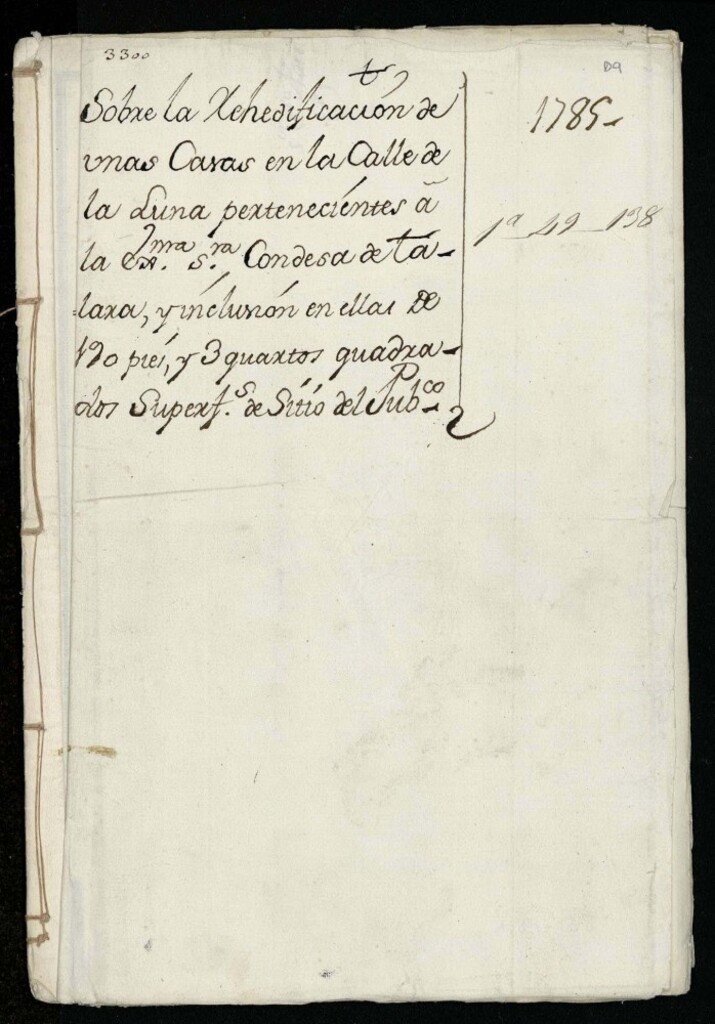 3300
D9
Sobre la Rehedificación de
unas Casas en la Calle de
la Luna pertenecientes á
la Exma. Sra. Condesa de Ta-
lara, y inclusión en ellas de
190 pies, y 3 quartos quadra-
dos Superf.s de Sitio del Pubco.
1785
1a 49 138